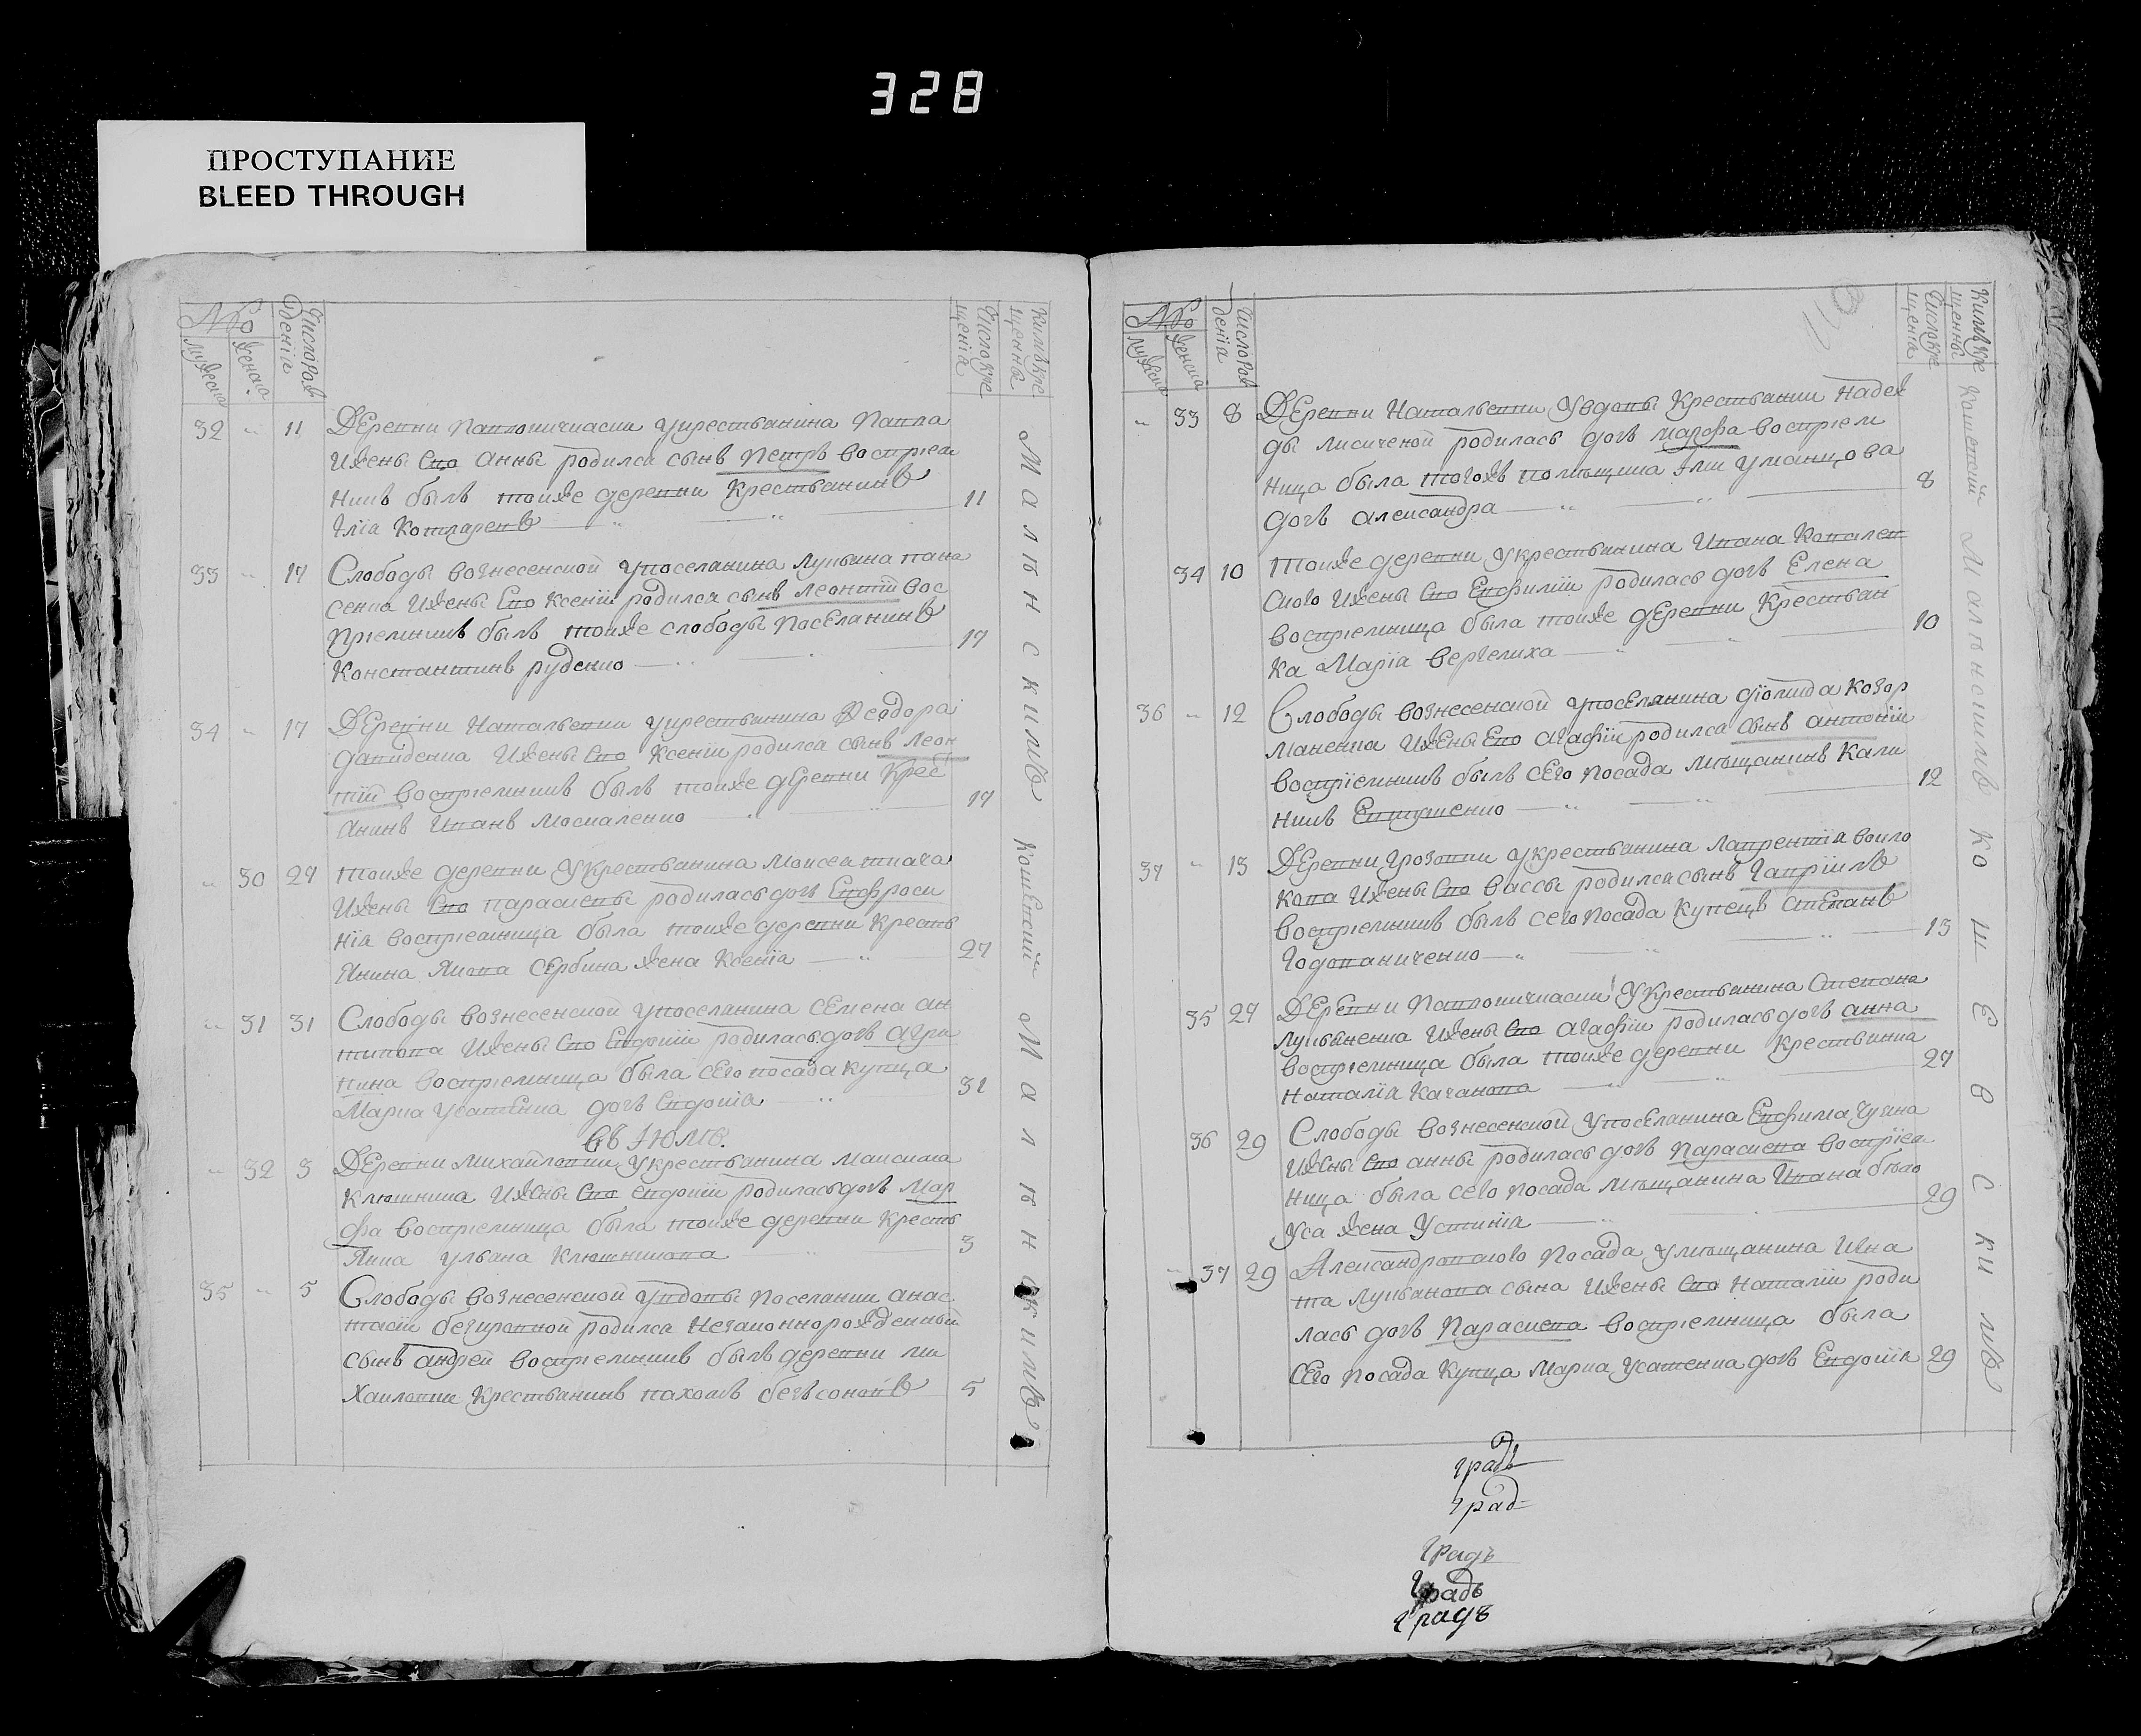 328
ПРОСТУПАНИЕ
BLEED THROUGH
№
мужеска
женска
число рож
денїа
число кре
щенїа
ким кре
щенна
32 " 11 Деревни Павловичкаски укрестьянина Павла
и жены его анны родился сынъ Петръ воспрїем
никъ былъ тоиже деревни крестьянинъ
Ілїа Котларевъ 11
33 " 17 Слободы вознесенской упоселанина лукьана пана
сенка и жены Его ксенїи родился сынъ леонтїй вос
прїемникъ былъ тоиже слободы поселанинъ
Константинъ руденко 17
34 " 17 Деревни Натальевки укрестьянина Феодора
давиденка и жены Его Ксенїи родился сынъ Леон
тїй воспрїемникъ былъ тоиже деревни Крест
янинъ Иванъ москаленко 17
" 30 27 тоиже деревни Укрестьянина Моисеа ткача
и жены Его параскевы родилась дочъ Евфроси
нїа воспрїемница была тоиже деревни Кресть
янина Якова Сербина жена Ксенїа 27
" 31 31 Слободы вознесенской упоселанина Семена ан
типова и жены Его Евдокїи родилась дочъ агри
пина воспрїемница была сего посада купца
Марка усатенка дочъ Евдокїа 31
въ Іюлѣ.
" 32 3 Деревни михайловки укрестьянина максима
клюшника и жены Его евдокїи родилась дочъ Мар
фа воспрїемница была тоиже деревни Кресть
янка ульана Клюшникова 3
35 " 5 Слободы вознесенской увдовы поселанки анас
тасїи безкровной родился незаконнорожденный
сынъ андрей воспрїемникъ былъ деревни ми
хаиловки крестьянинъ пахомъ безсоновъ 5
Малѣнскимъ Кошевскїй Малѣнскимъ
№
мужеска
женска
число рож
денїа
число кре
щенїа
ким кре
щенны
" 33 8 Деревни Натальевки Увдовы крестьянки надеж
ды лисиченой родилась дочъ марфа воспрїем
ница была тогожъ помѣщика Іли уманцова
дочъ александра 8
34 10 тоиже деревни Укрестьянина Ивана Ковалев
скаго и жены Его Евфимїи родилась дочъ Елена
воспрїемница была тоиже деревни Крестьян
ка Марїа вергелиха 10
36 " 12 Слободы вознесенской упоселанина дїомида козор
маненка и жены Его агафїи родился сынъ антонїй
воспрїемникъ былъ сего посада мѣщанинъ Кали
никъ Евтушенко 12
37 " 13 Деревни грозовки укрестьянина лаврентїа волко
кова и жены Его вассы родился сынъ гаврїилъ
воспрїемникъ былъ сего посада купецъ степанъ
годованиченко 13
35 27 Деревни Павловичкаски Укрестьянина Степана
лукьяненка и жены Его агафїи родилась дочъ анна
воспрїемница была тоиже деревни крестьянка
наталїа Качанова 27
36 29 Слободы вознесенской Упоселанина Евфима, Чуяна
и жены Его анны родилась дочъ Параскева воспрїем
ница была сего посада мѣщанина Ивана бѣло
уса жена Устинїа 29
" 37 29 Александровского посада умѣщанина Игна
та лукьянова сына и жены Его наталїи роди
лась дочъ Параскева воспрїемница была
сего посада купца Марка Усатенка дочъ Евдокїа 29
Кошевскїй Малѣнскимъ Кошевскимъ
градъ
град
градъ
градъ
градъ